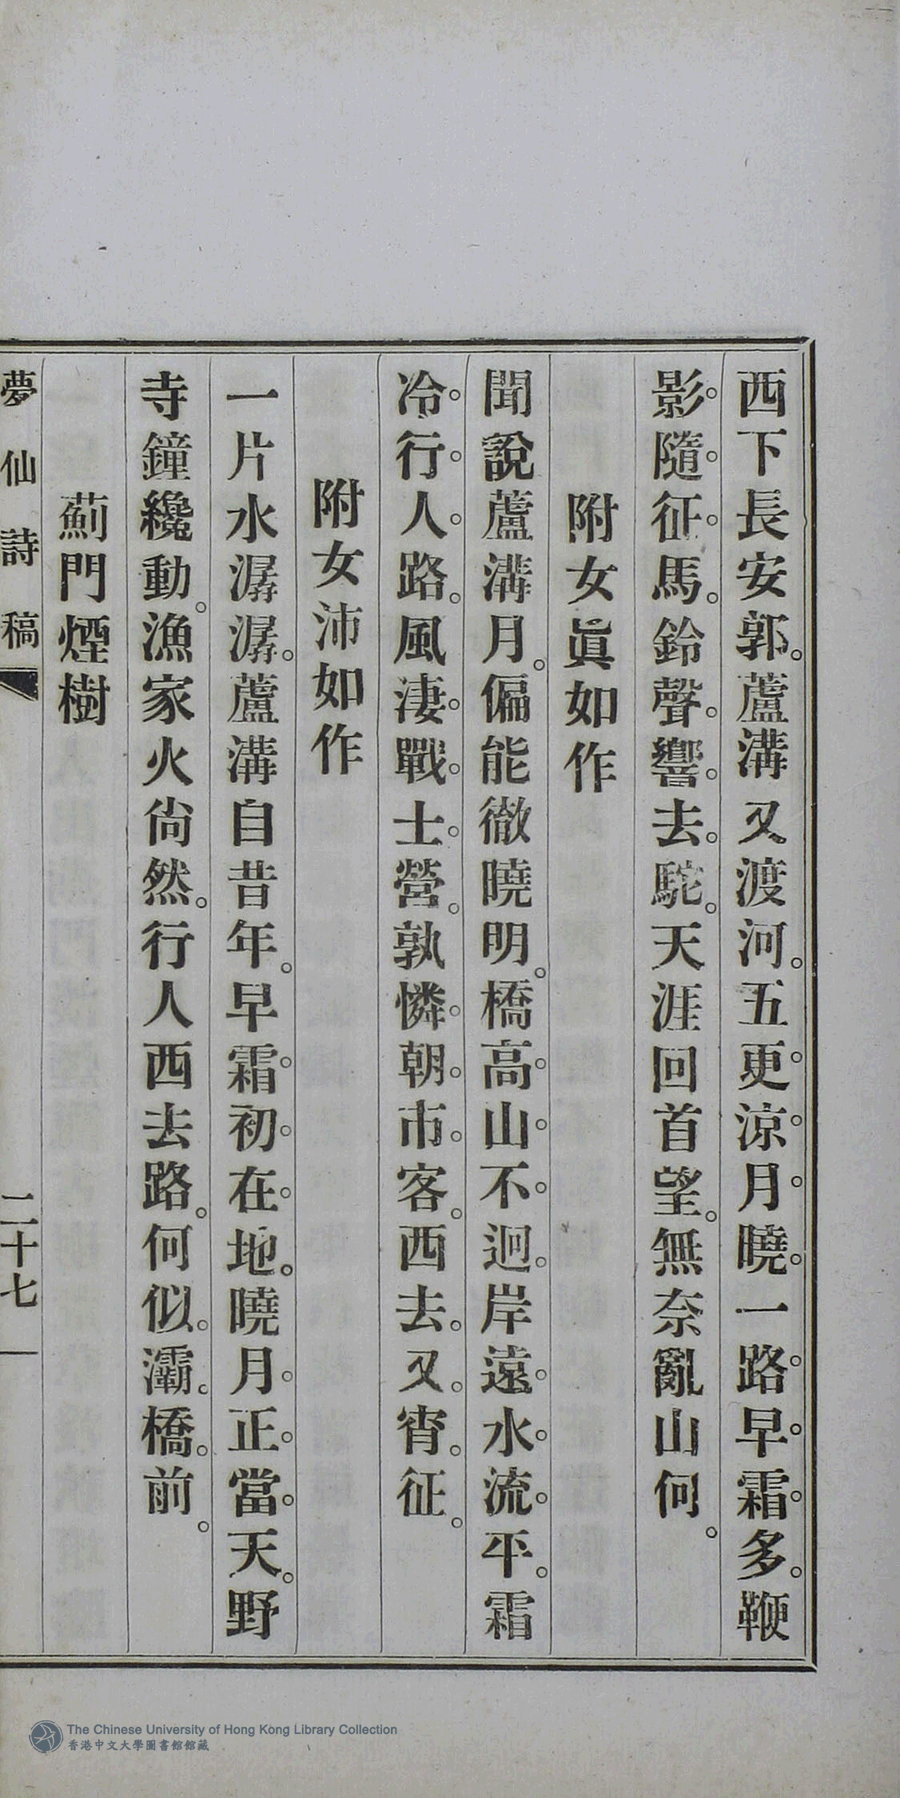 西下長安郭。蘆溝又渡河。五更涼月曉。一路早霜多。鞭
影隨征馬。鈴聲響去駝。天涯回首望。無奈亂山何。
附女眞如作
聞說蘆溝月。偏能徹曉明。橋高山不迴。岸遠水流平。霜
冷行人路。風淒戰士營。孰憐朝市客。西去又宵征。
附女沛如作
一片水潺潺。蘆溝自昔年。早霜初在地。曉月正當天。野
寺鐘纔動。漁家火尙然。行人西去路。何似灞橋前。
薊門煙樹
夢仙詩稿
二十七
The Chinese University of Hong Kong Library Collection
香港中文大學圖書館館藏